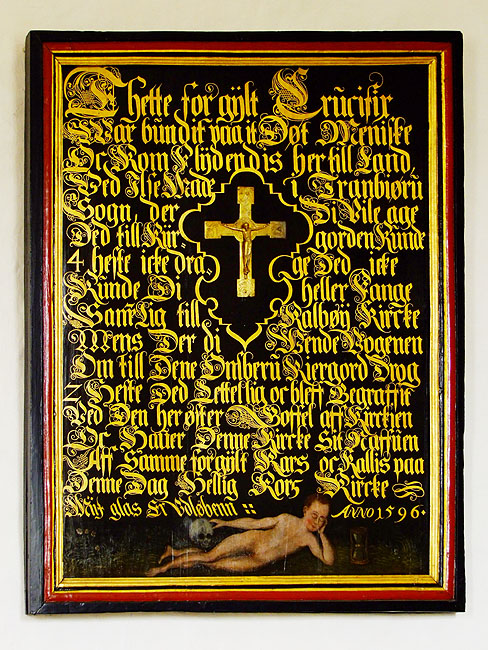 Thette for gÿlt Crucifix
War bundit paa it Døt Meniske
Oc Kom Flÿdendis her till Land,
Ved Ilse Made i Tranbiøru
Sogn, der Di Vile age
Ded till Kir- gorden Kunde
4 heste icke dra, ge Ded icke
Kunde Di heller Fange
Samlig till Kalbøÿ Kircke
Mens Der di Wende Vogenen
Om till Dene Omberu Kiergord Drog
2 Heste Ded Lettelig oc bleff Begraffit
Ved Den her øster Goffel aff Kircken
Oc Hauer Denne Kircke Sit Naffuen
Aff Samme for gÿlt Kars oc Kallis paa
Denne Dag Hellig Kors Kircke
glas ANNO 1596.